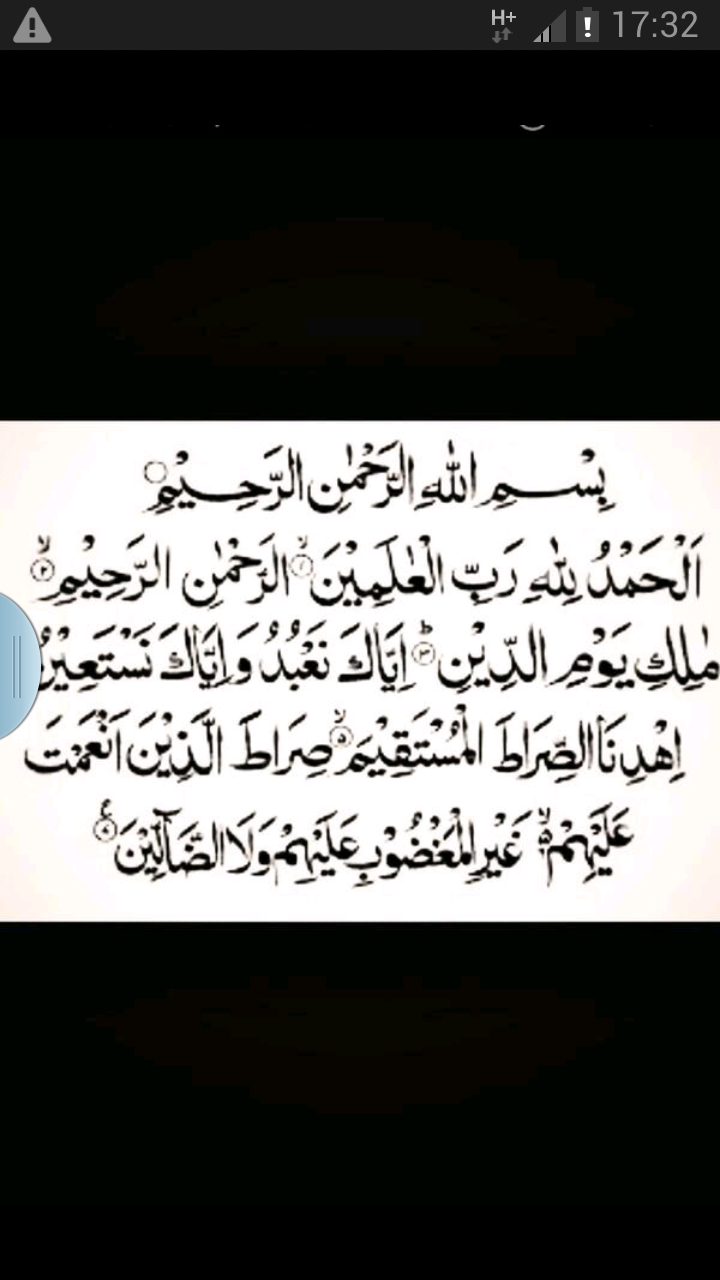 H+ 17:32
بِسْمِ اللهِ الرَّحْمٰنِ الرَّحِيْمِ
اَلْحَمْدُ لِلّٰهِ رَبِّ الْعٰلَمِيْنَ ۙ﴿۱﴾ الرَّحْمٰنِ الرَّحِيْمِ ۙ﴿۲﴾
مٰلِكِ يَوْمِ الدِّيْنِ ؕ﴿۳﴾ اِيَّاكَ نَعْبُدُ وَاِيَّاكَ
اِهْدِنَا الصِّرَاطَ الْمُسْتَقِيْمَ ۙ﴿۵﴾ صِرَاطَ الَّذِيْنَ اَنْعَمْتَ
عَلَيْهِمْ ۙ غَيْرِ الْمَغْضُوْبِ عَلَيْهِمْ وَلَا الضَّآلِّيْنَ